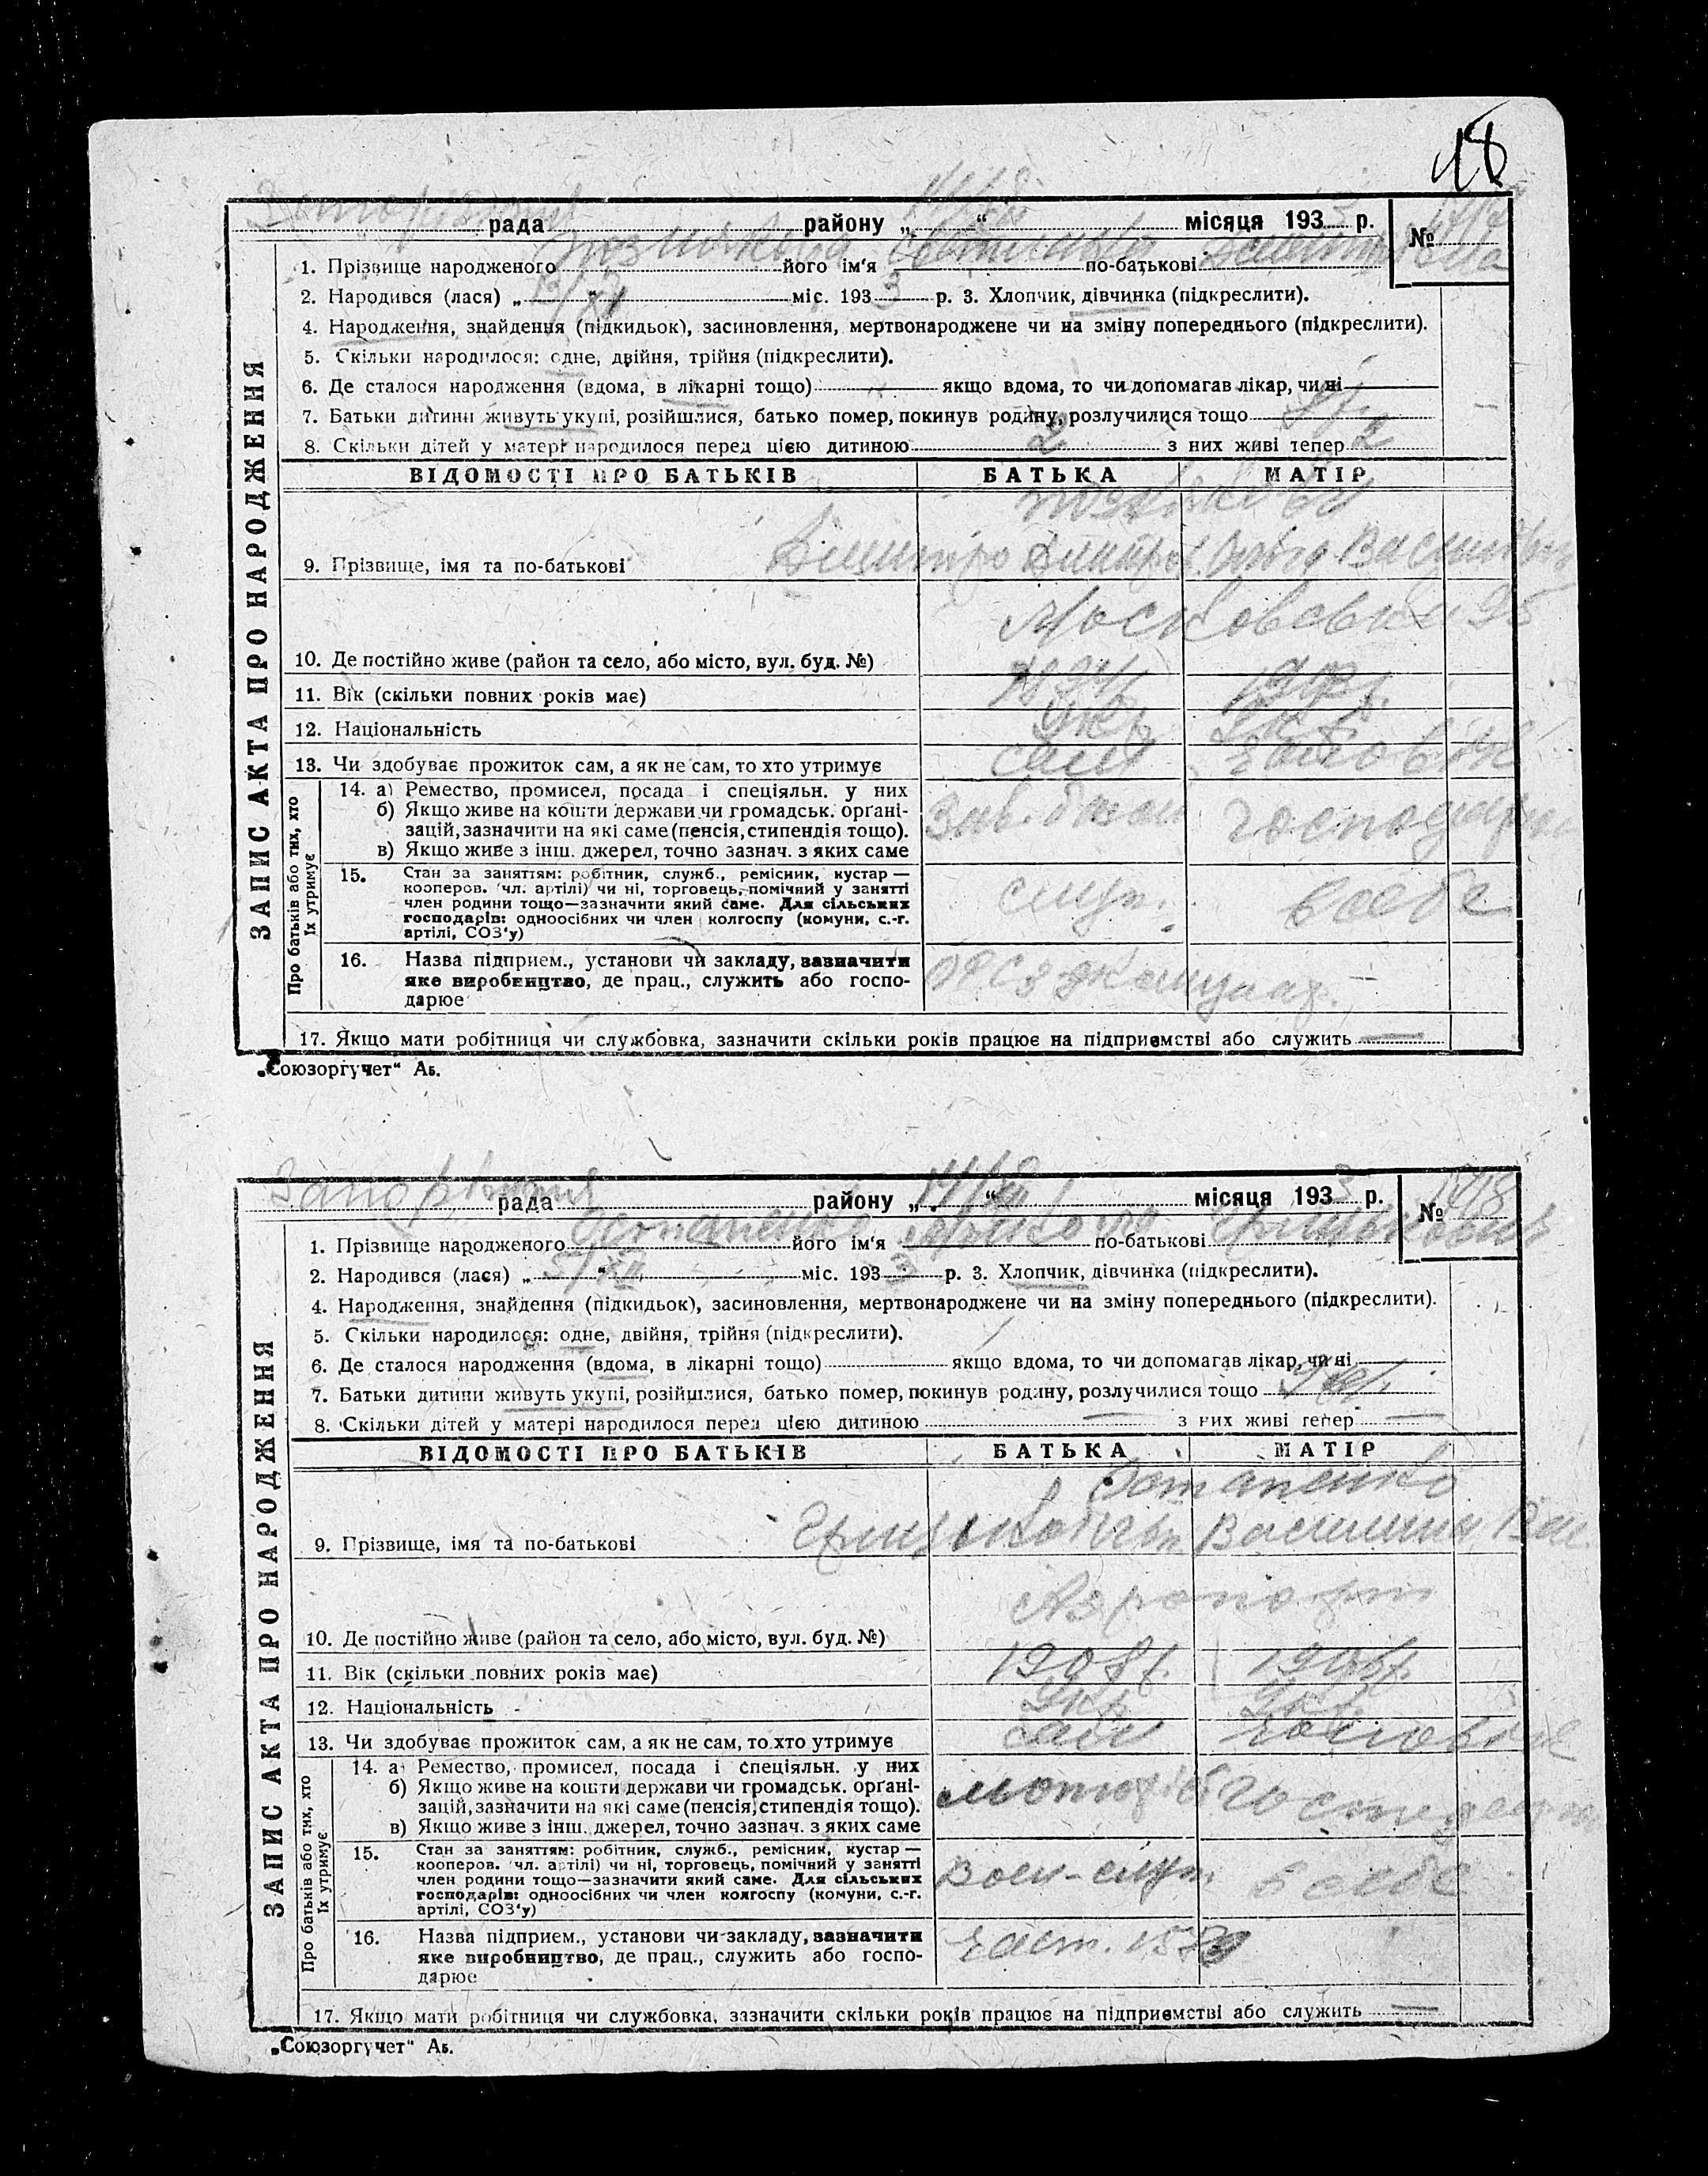 18
рада району „ “ місяця 1933 р. №
1. Прізвище народженого його ім'я по-батькові
2. Народився (лася) „ “ міс. 1933 р. 3. Хлопчик, дівчинка (підкреслити).
4. Народження, знайдення (підкидьок), засиновлення, мертвонароджене чи на зміну попереднього (підкреслити).
5. Скільки народилося: одне, двійня, трійня (підкреслити).
6. Де сталося народження (вдома, в лікарні тощо) якщо вдома, то чи допомагав лікар, чи ні
7. Батьки дитини живуть укупі, розійшлися, батько помер, покинув родину, розлучилися тощо
8. Скільки дітей у матері народилося перед цією дитиною 2 з них живі тепер 2
ЗАПИС АКТА ПРО НАРОДЖЕННЯ
ВІДОМОСТІ ПРО БАТЬКІВ БАТЬКА МАТІР
9. Прізвище, імя та по-батькові Дмитро
10. Де постійно живе (район та село, або місто, вул. буд. №)
11. Вік (скільки повних років має)
12. Національність Укр. Укр.
13. Чи здобуває прожиток сам, а як не сам, то хто утримує сам чоловік
Про батьків або тих, хто їх утримує
14. а) Ремество, промисел, посада і спеціяльн. у них
б) Якщо живе на кошти держави чи громадськ. орґані-
зацій, зазначити на які саме (пенсія, стипендія тощо).
в) Якщо живе з інш. джерел, точно зазнач. з яких саме
15. Стан за заняттям: робітник, служб., ремісник, кустар —
кооперов. чл. артілі) чи ні, торговець, помічний у занятті
член родини тощо—зазначити який саме. Для сільських
господарів: одноосібних чи член колгоспу (комуни, с.-г.
артілі, СОЗ'у)
служ. в себе
16. Назва підприєм., установи чи закладу, зазначити
яке виробництво, де прац., служить або госпо-
дарює
17. Якщо мати робітниця чи службовка, зазначити скільки років працює на підприємстві або служить —
„Союзоргучет“ Аб.
рада району „14/XII“ місяця 1933 р. №
1. Прізвище народженого Остапенко його ім'я Микола по-батькові
2. Народився (лася) „5/XII“ міс. 1933 р. 3. Хлопчик, дівчинка (підкреслити).
4. Народження, знайдення (підкидьок), засиновлення, мертвонароджене чи на зміну попереднього (підкреслити).
5. Скільки народилося: одне, двійня, трійня (підкреслити).
6. Де сталося народження (вдома, в лікарні тощо) якщо вдома, то чи допомагав лікар, чи ні
7. Батьки дитини живуть укупі, розійшлися, батько помер, покинув родину, розлучилися тощо
8. Скільки дітей у матері народилося перед цією дитиною — з них живі тепер —
ЗАПИС АКТА ПРО НАРОДЖЕННЯ
ВІДОМОСТІ ПРО БАТЬКІВ БАТЬКА МАТІР
Остапенко
9. Прізвище, імя та по-батькові Василина Вас.
10. Де постійно живе (район та село, або місто, вул. буд. №)
11. Вік (скільки повних років має) 1908 р.
12. Національність Укр. Укр.
13. Чи здобуває прожиток сам, а як не сам, то хто утримує сам чоловік
Про батьків або тих, хто їх утримує
14. а) Ремество, промисел, посада і спеціяльн. у них
б) Якщо живе на кошти держави чи громадськ. орґані-
зацій, зазначити на які саме (пенсія, стипендія тощо).
в) Якщо живе з інш. джерел, точно зазнач. з яких саме
15. Стан за заняттям: робітник, служб., ремісник, кустар —
кооперов. чл. артілі) чи ні, торговець, помічний у занятті
член родини тощо—зазначити який саме. Для сільських
господарів: одноосібних чи член колгоспу (комуни, с.-г.
артілі, СОЗ'у)
Воен-служ. в себе
16. Назва підприєм., установи чи закладу, зазначити
яке виробництво, де прац., служить або госпо-
дарює
17. Якщо мати робітниця чи службовка, зазначити скільки років працює на підприємстві або служить —
„Союзоргучет“ Аб.